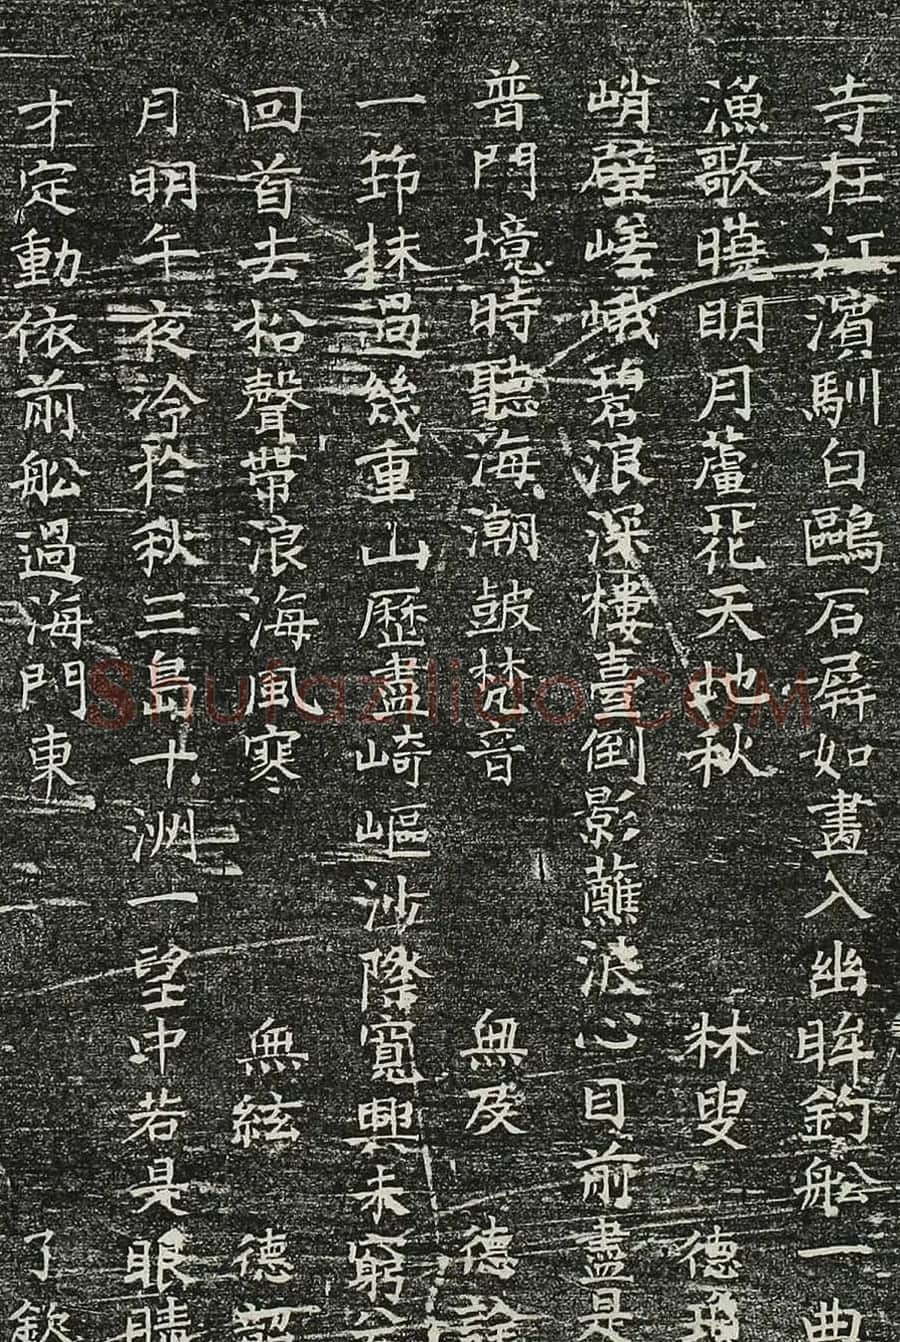 寺在江濱馴白鷗石屏如畫入幽眸釣舩一曲
漁歌曉明月蘆花天地秋 林叟 德
峭壁嵯峨碧浪深樓臺倒影蘸波心目前盡是
普門境時聽海潮鼓梵音 無及 德詮
一筇抹過幾重山歷盡崎嶇涉險寬興未窮兮
回首去松聲帶浪海風寒 無絃 德韶
月明午夜冷於秋三島十洲一望中若是眼睛
才定動依前舩過海門東 了欽
Shufaziliao.COM